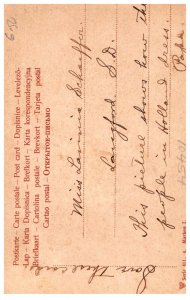 Postkarte — Carte postale — Post card — Dopisnice — Levelező-
-Lap — Karta Dopisnica — Brefkort — Karta korespondencyjna
Briefkaart — Cartolina postale — Brevkort — Tarjeta postal
Cartao postal — Открытое письмо
Miss Lavinia Schaeffer
Langford S.D.
This picture shows how the
people in Holland dress.
Papa